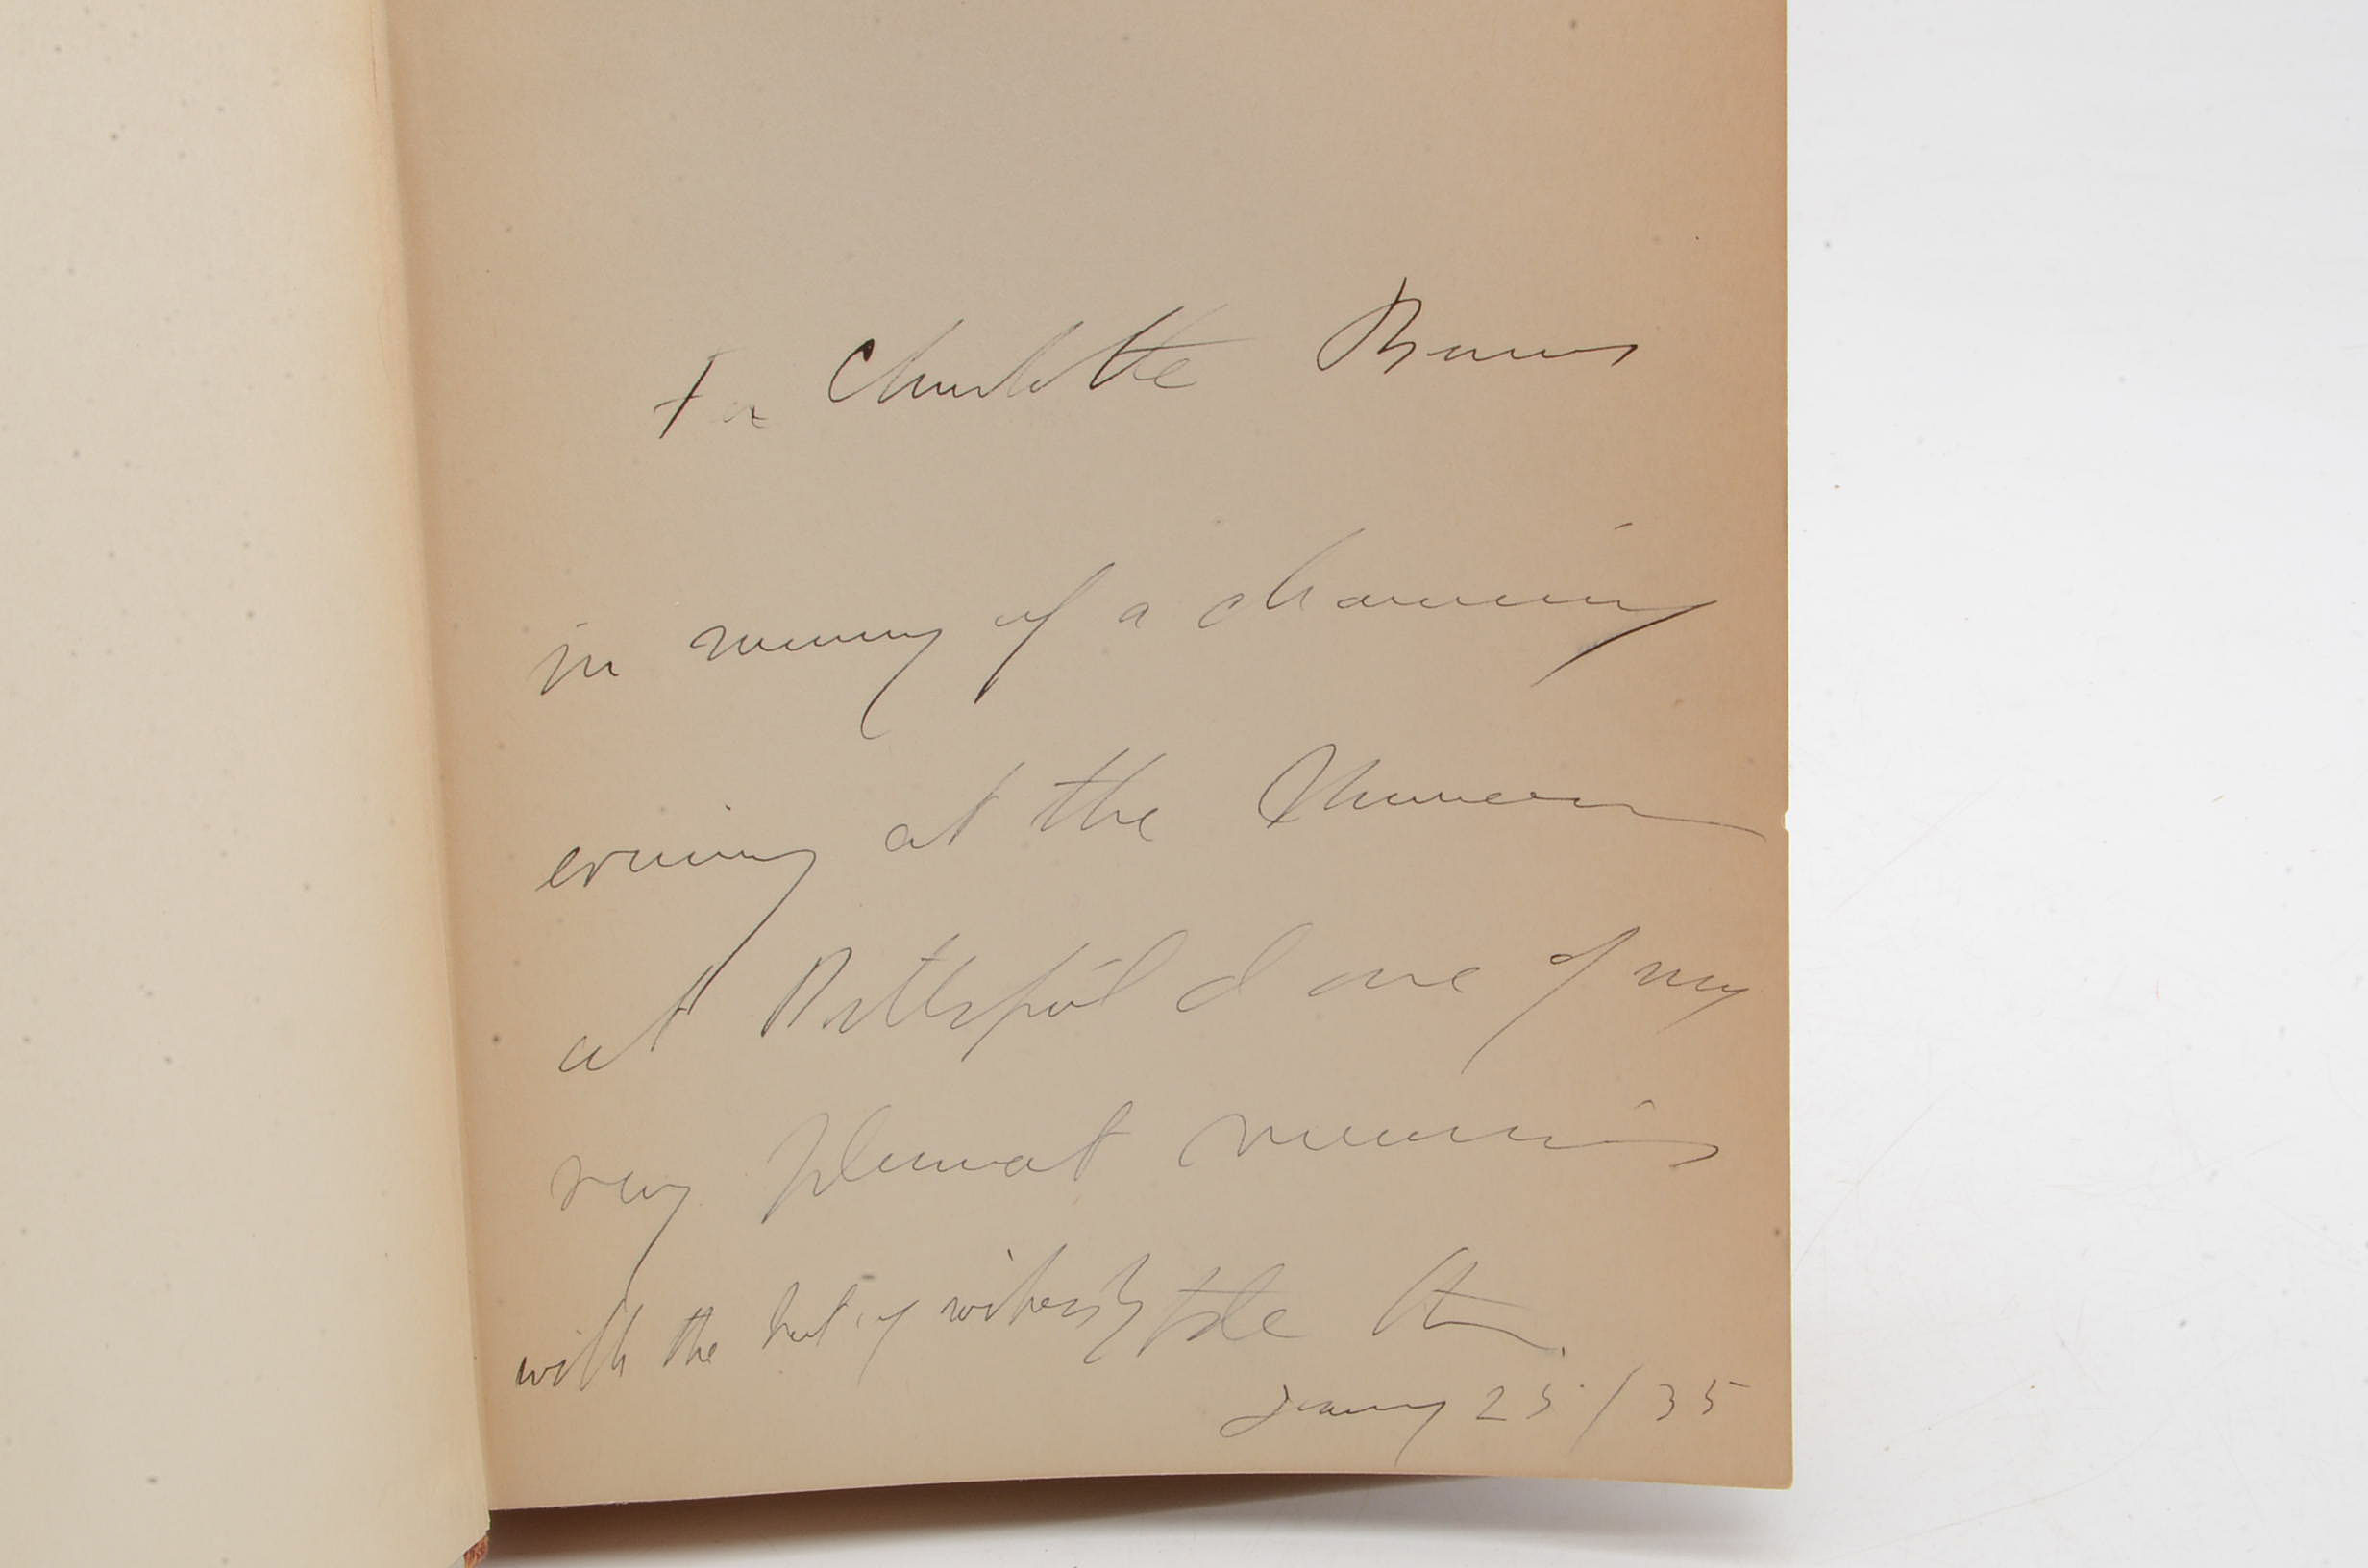 For Charlotte
in memory of a charming
evening at the Museum
at Pittsfield & one of my
very pleasant memories
with the best of wishes
January 25 / 35